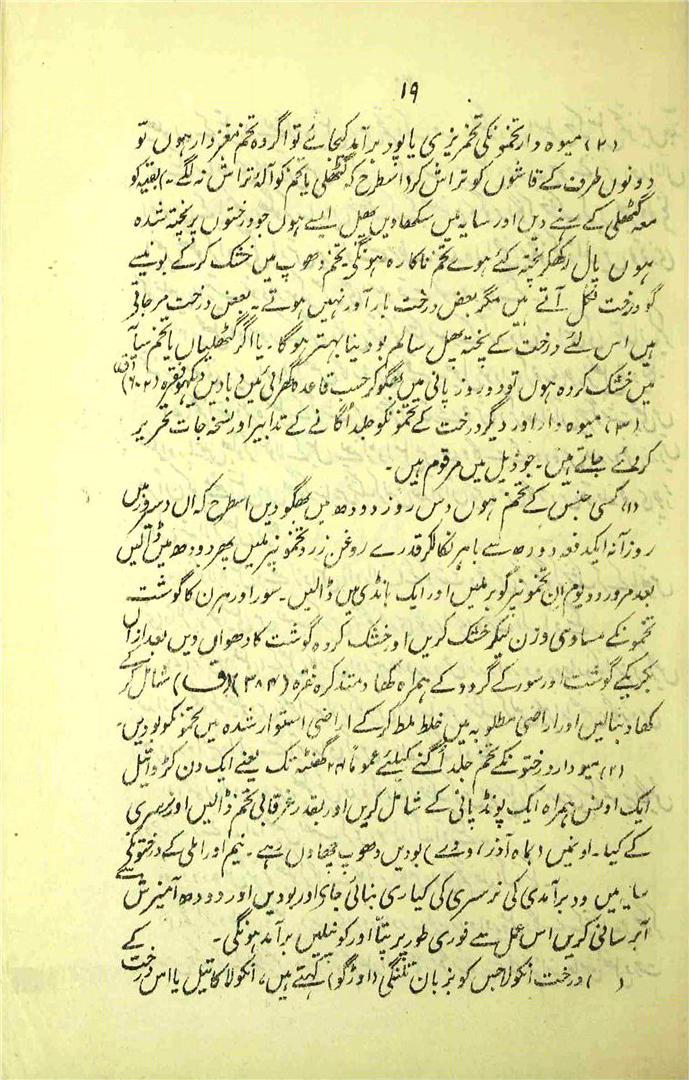 ۱۹
(۲) میوہ دار تخمونکی تخمریزی یا پود برآمد کیجائے تو اگر وہ تخم مغز دار ہوں تو
دونوں طرف کے قاشوں کو تراش کر (اسطرح کہ گٹھلی یا تخم کو آلۂ تراش نہ لگے۔) بقیہ کو
معہ گٹھلی کے رہنے دیں اور سایہ میں سکھا دیں پھل ایسے ہوں جو درختوں پر پختہ شدہ
ہوں پال رکھکر پختہ کئے ہوے تخم ناکارہ ہونگے تخم دھوپ میں خشک کرکے بونیسے
گو درخت نکل آتے ہیں مگر بعض درخت بار آور نہیں ہوتے۔ بعض درخت مرجاتے
ہیں اس لئے درخت کے پختہ پھل سالم بو دینا بہتر ہوگا۔ یا اگر گٹھلیاں یا تخم سایہ
میں خشک کردہ ہوں تو دو روز پانی میں بھگو کر حسب قاعدہ گھرائی میں دبا دیں دیکھو فقرہ (۶۰۲)
(۳) میوہ دار اور دیگر درخت کے تخمونکو جلد اُگانے کے تدابیر اور نسخہ جات تحریر
کرئے جاتے ہیں۔ جو ذیل میں مرقوم ہیں۔
(۱) کسی جنس کے تخم ہوں دس روز دودھ میں بھگو دیں اسطرح کہ ان دس روز میں
روزآنہ ایکدفعہ دودھ سے باہر نکالکر قدرے روغن زرد تخمونپر ملیں پھر دودھ میں ڈالیں
بعد مرور دہ یوم ان تخمونپر گوبر ملیں اور ایک ہانڈی میں ڈالیں۔ سور اور ہرن کا گوشت
تخمونکے مساوی وزن لیکر خشک کریں اور خشک کردہ گوشت کا دھواں دیں بعد ازاں
بکریکے گوشت اور سور کے گردہ کے ہمراہ کھاد متذکرہ فقرہ (۳۸۴) (ق) شامل کرکے
کھاد بنالیں اور اراضی مطلوبہ میں خلط ملط کرکے اراضی استوار شدہ میں تخمونکو بودیں۔
(۲) میوہ دار درختونکے تخم جلد اُگنے کیلئے عموماً ۲۴ گھنٹہ تک یعنے ایک دن کڑوا تیل
ایک اونس ہمراہ ایک پونڈ پانی کے شامل کریں اور بقدر غرقابی تخم ڈالیں اور نرسری
کے کیا۔ اونمیں (بماہ آذر، ودے) بودیں دھوپ چھاوں رہے۔ نیم اور املی کے درختونکے
سایہ میں ود برآمدی کی نرسری کی کیاری بنائی جائے اور بودیں اور دودھ آمیزش سے
آبرسانی کریں اس عمل سے فوری طور پر پتّا اور کونپلیں برآمد ہونگی۔
( ) درخت انکولا جس کو بزبان تلنگی (اوڑگو) کہتے ہیں، انکولا کا تیل یا اس درخت کے